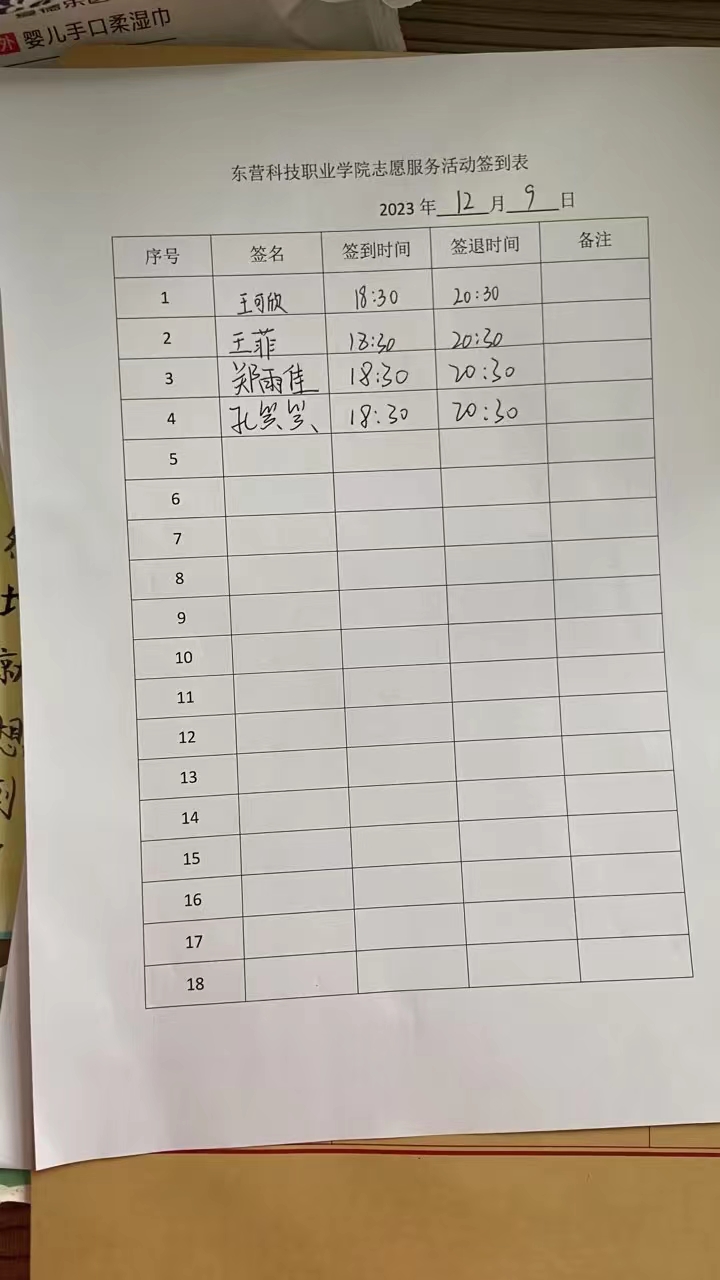 婴儿手口柔湿巾
东营科技职业学院志愿服务活动签到表
2023 年 12 月 9 日
序号 签名 签到时间 签退时间 备注
1 王可欣 18:30 20:30
2 王菲 18:30 20:30
3 郑雨佳 18:30 20:30
4 孔笑笑 18:30 20:30
5
6
7
8
9
10
11
12
13
14
15
16
17
18
就
想
到